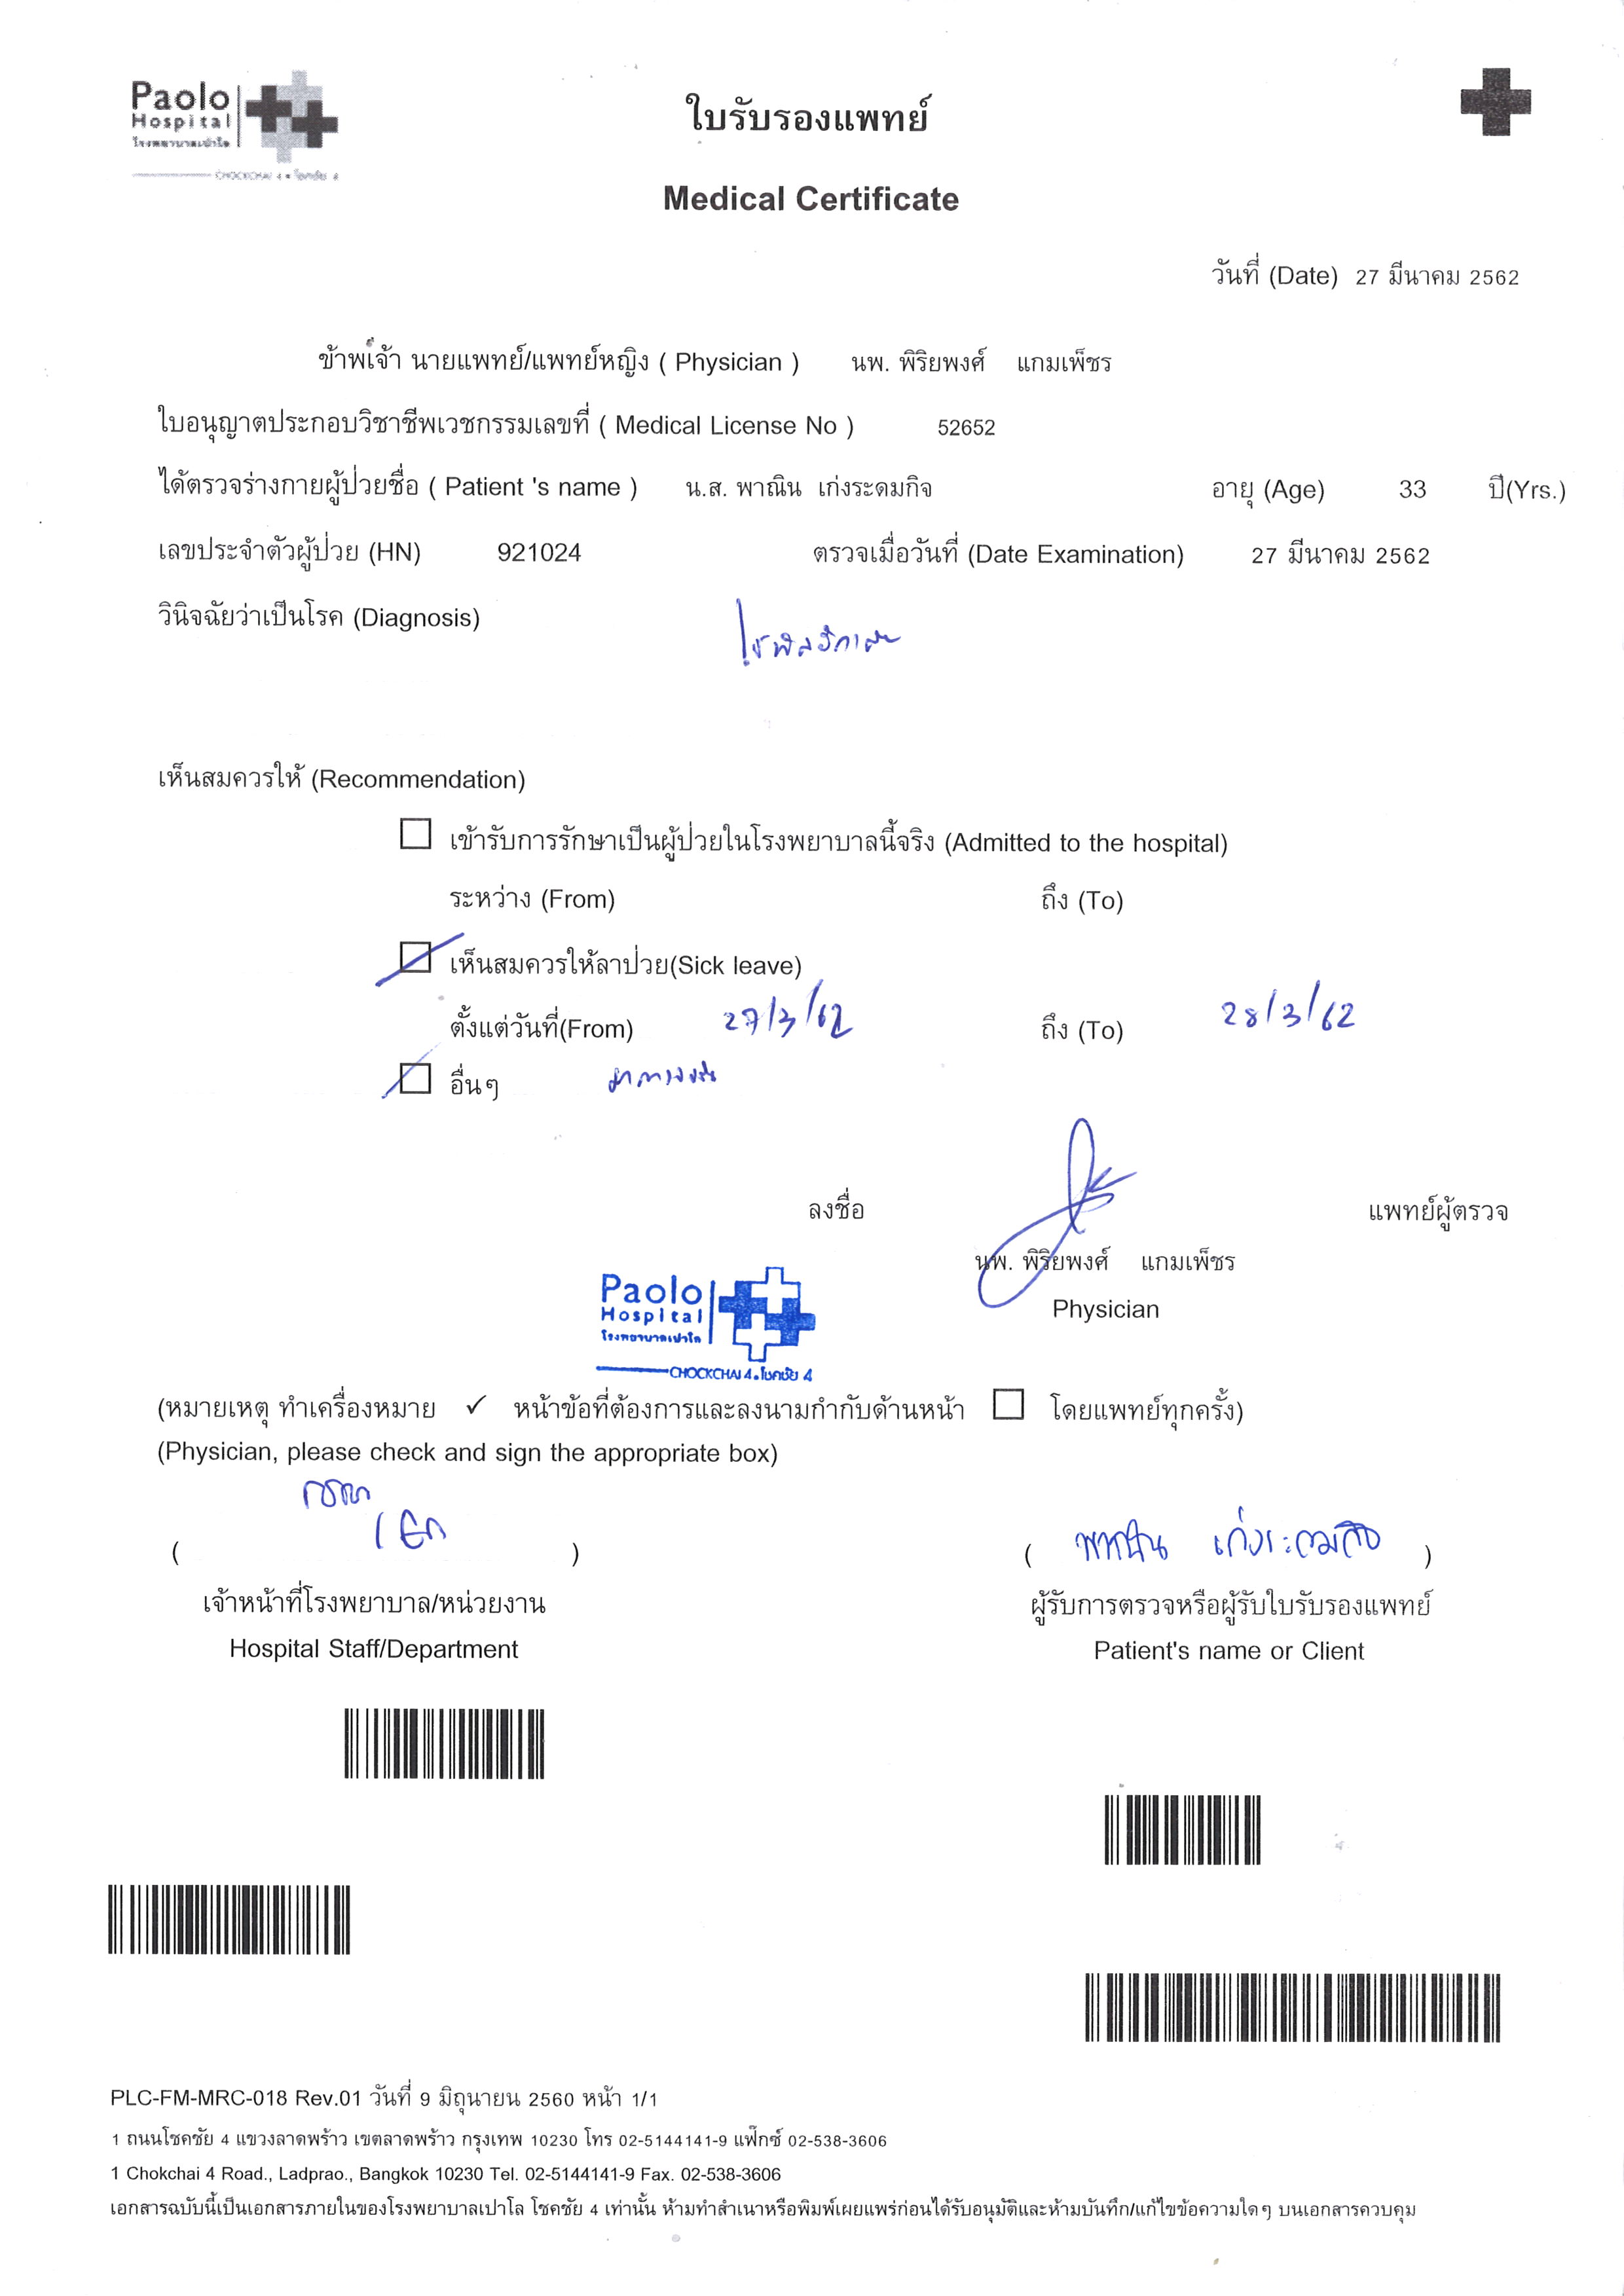 Paolo
Hospital
โรงพยาบาลเปาโล
CHOCKCHAI 4 • โชคชัย 4
ใบรับรองแพทย์
Medical Certificate
วันที่ (Date) 27 มีนาคม 2562
ข้าพเจ้า นายแพทย์/แพทย์หญิง ( Physician ) นพ. พิริยพงศ์ แกมเพ็ชร
ใบอนุญาตประกอบวิชาชีพเวชกรรมเลขที่ ( Medical License No ) 52652
ได้ตรวจร่างกายผู้ป่วยชื่อ ( Patient 's name ) น.ส. พาณิน เก่งระดมกิจ อายุ (Age) 33 ปี(Yrs.)
เลขประจำตัวผู้ป่วย (HN) 921024 ตรวจเมื่อวันที่ (Date Examination) 27 มีนาคม 2562
วินิจฉัยว่าเป็นโรค (Diagnosis)
เห็นสมควรให้ (Recommendation)
เข้ารับการรักษาเป็นผู้ป่วยในโรงพยาบาลนี้จริง (Admitted to the hospital)
ระหว่าง (From) ถึง (To)
เห็นสมควรให้ลาป่วย(Sick leave)
ตั้งแต่วันที่(From) 27/3/62 ถึง (To) 28/3/62
อื่นๆ
ลงชื่อ แพทย์ผู้ตรวจ
นพ. พิริยพงศ์ แกมเพ็ชร
Physician
Paolo
Hospital
โรงพยาบาลเปาโล
CHOCKCHAI 4 • โชคชัย 4
(หมายเหตุ ทำเครื่องหมาย ✓ หน้าข้อที่ต้องการและลงนามกำกับด้านหน้า ☐ โดยแพทย์ทุกครั้ง)
(Physician, please check and sign the appropriate box)
( ) ( พาณิน เก่งระดมกิจ )
เจ้าหน้าที่โรงพยาบาล/หน่วยงาน ผู้รับการตรวจหรือผู้รับใบรับรองแพทย์
Hospital Staff/Department Patient's name or Client
PLC-FM-MRC-018 Rev.01 วันที่ 9 มิถุนายน 2560 หน้า 1/1
1 ถนนโชคชัย 4 แขวงลาดพร้าว เขตลาดพร้าว กรุงเทพ 10230 โทร 02-5144141-9 แฟ็กซ์ 02-538-3606
1 Chokchai 4 Road., Ladprao., Bangkok 10230 Tel. 02-5144141-9 Fax. 02-538-3606
เอกสารฉบับนี้เป็นเอกสารภายในของโรงพยาบาลเปาโล โชคชัย 4 เท่านั้น ห้ามทำสำเนาหรือพิมพ์เผยแพร่ก่อนได้รับอนุมัติและห้ามบันทึก/แก้ไขข้อความใดๆ บนเอกสารควบคุม